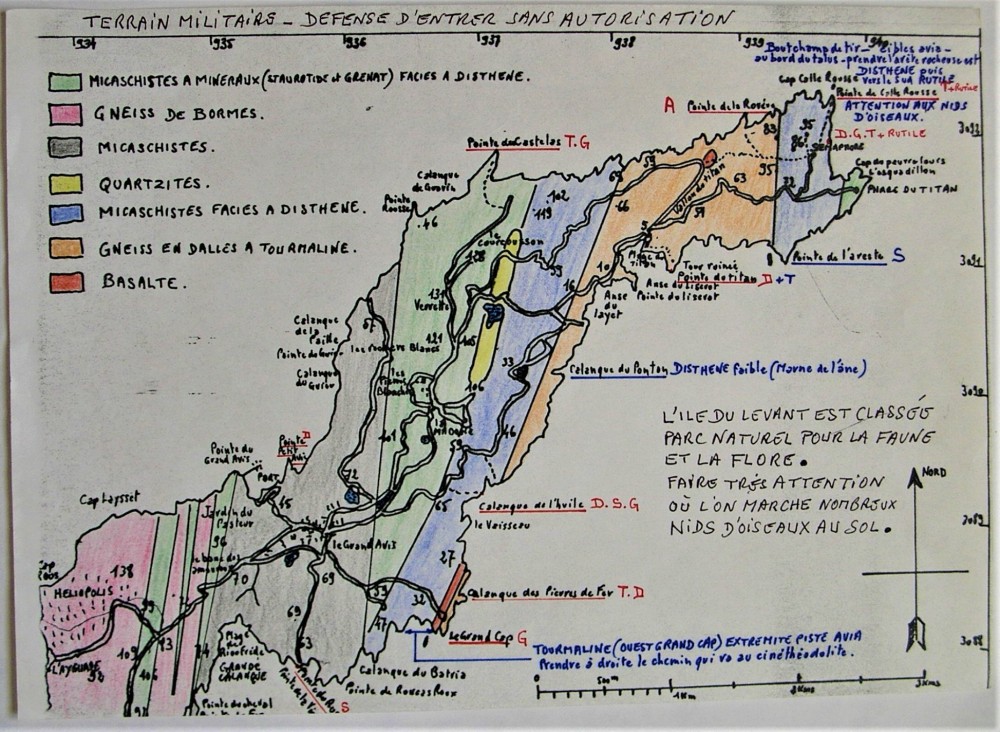 TERRAIN MILITAIRE - DEFENSE D'ENTRER SANS AUTORISATION
934 935 936 937 938 939 940
MICASCHISTES A MINERAUX (STAUROTIDE et GRENAT) FACIES A DISTHENE.
GNEISS DE BORMES.
MICASCHISTES.
QUARTZITES.
MICASCHISTES FACIES A DISTHENE.
GNEISS EN DALLES A TOURMALINE.
BASALTE.
Bout champ de tir - Cibles avia -
au bord du talus - prendre l'arête rocheuse est
DISTHENE puis
vers le Sud RUTILE
Cap Calle Rousse
Pointe de Calle Rousse T+RUTILE
ATTENTION AUX NIDS
D'OISEAUX.
D.G.T + RUTILE
SEMAPHORE
PHARE DU TITAN
A Pointe de la Rosère
Pointe du Castelas T.G
Calanque
Pointe
Rousse
83
95
86
95
22
63
59
59
69
66
102
119
46
128
99
16
10
Vallon du titan
Tour ruinée
Pointe du titan D+T
Anse du Liserot
Pointe du liserot
Anse
du
Layet
Pointe de l'areste S
3092
3091
3090
3089
3088
131
121
105
106
33
46
59
65
101
67
72
Calanque
de la
Paille
Calanque
Les Pierres Blanches
Calanque du Ponton DISTHENE faible (Marne de l'âne)
L'ILE DU LEVANT EST CLASSÉE
PARC NATUREL POUR LA FAUNE
ET LA FLORE.
FAIRE TRÈS ATTENTION
OÙ L'ON MARCHE NOMBREUX
NIDS D'OISEAUX AU SOL.
NORD
Pointe du
Grand Avis
Pointe D
Petit
Avis
PORT
65
Cap Laysset
Jardin du
Pasteur
96
Calanque de l'huile D.S.G
le Vaisseau
le Grand Avis
27
Calanque des Pierres de Fer T.D
32
53
47
69
69
63
70
HELIOPOLIS
138
99
93
109
106
74
L'AYGUADE
98
le Grand Cap G
TOURMALINE (OUEST GRAND CAP) EXTREMITE PISTE AVIA
Prendre à droite le chemin qui va au cinéthéodolite.
GRANDE
CALANQUE
Calanque du Batria
Pointe de Roucas Roux
S
Pointe du cheval
0 500m 1Km 2Kms 3Kms